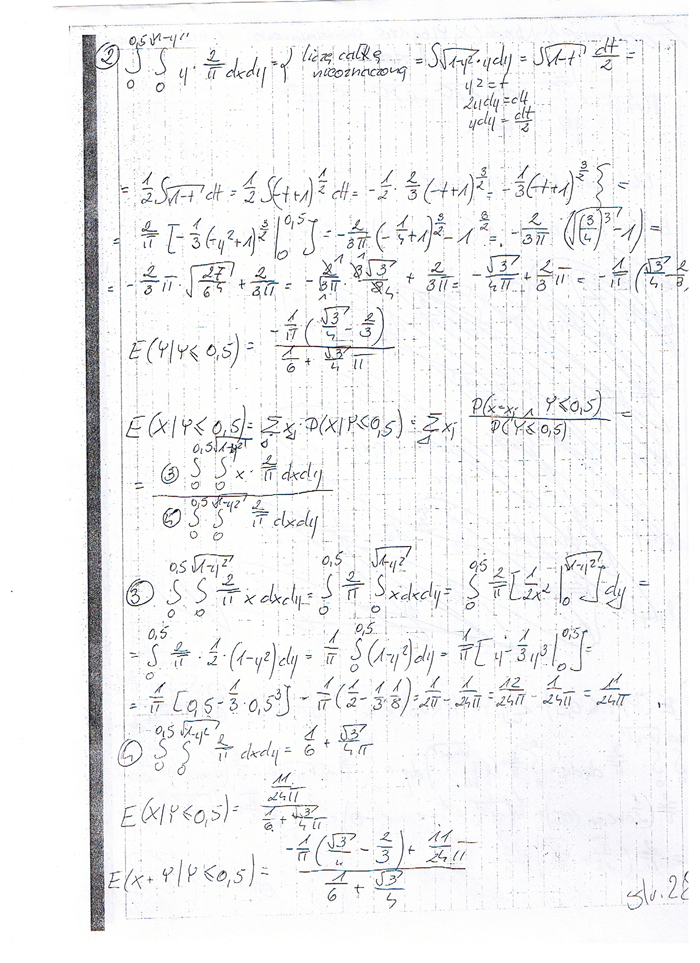 ② ∫₀^{0,5} ∫₀^{√(1-y²)} y · 2/π dxdy = { liczę całkę nieoznaczoną = ∫√(1-y²) · y dy = ∫√(1-t) dt/2 =
y² = t
2ydy = dt
ydy = dt/2
= 1/2 ∫√(1-t) dt = 1/2 ∫(-t+1)^{1/2} dt = -1/2 · 2/3 (-t+1)^{3/2} = -1/3 (-t+1)^{3/2} } =
= 2/π [-1/3 (-y²+1)^{3/2} |₀^{0,5}] = -2/3π (-1/4+1)^{3/2} - 1^{3/2} = -2/3π (√((3/4)³) - 1) =
= -2/3π · √(27/64) + 2/3π = -2/3π · 3√3/8 + 2/3π = -√3/4π + 2/3π = -1/π (√3/4 - 2/3)
E(Y|Y≤0,5) = (-1/π (√3/4 - 2/3)) / (1/6 + √3/4π)
E(X|Y≤0,5) = Σ xⱼ · P(X|Y≤0,5) = Σ xⱼ P(x=xⱼ ∧ Y≤0,5) / P(Y≤0,5) =
= ③ ∫₀^{0,5} ∫₀^{√(1-y²)} x · 2/π dxdy
④ ∫₀^{0,5} ∫₀^{√(1-y²)} 2/π dxdy
③ ∫₀^{0,5} ∫₀^{√(1-y²)} 2/π x dxdy = ∫₀^{0,5} 2/π ∫₀^{√(1-y²)} x dxdy = ∫₀^{0,5} 2/π [1/2 x² |₀^{√(1-y²)}] dy =
= ∫₀^{0,5} 2/π · 1/2 · (1-y²) dy = 1/π ∫₀^{0,5} (1-y²) dy = 1/π [y - 1/3 y³ |₀^{0,5}] =
= 1/π [0,5 - 1/3 · 0,5³] = 1/π (1/2 - 1/3 · 1/8) = 1/2π - 1/24π = 12/24π - 1/24π = 11/24π
④ ∫₀^{0,5} ∫₀^{√(1-y²)} 2/π dxdy = 1/6 + √3/4π
E(X|Y≤0,5) = (11/24π) / (1/6 + √3/4π)
E(X+Y|Y≤0,5) = (-1/π (√3/4 - 2/3) + 11/24π) / (1/6 + √3/4)